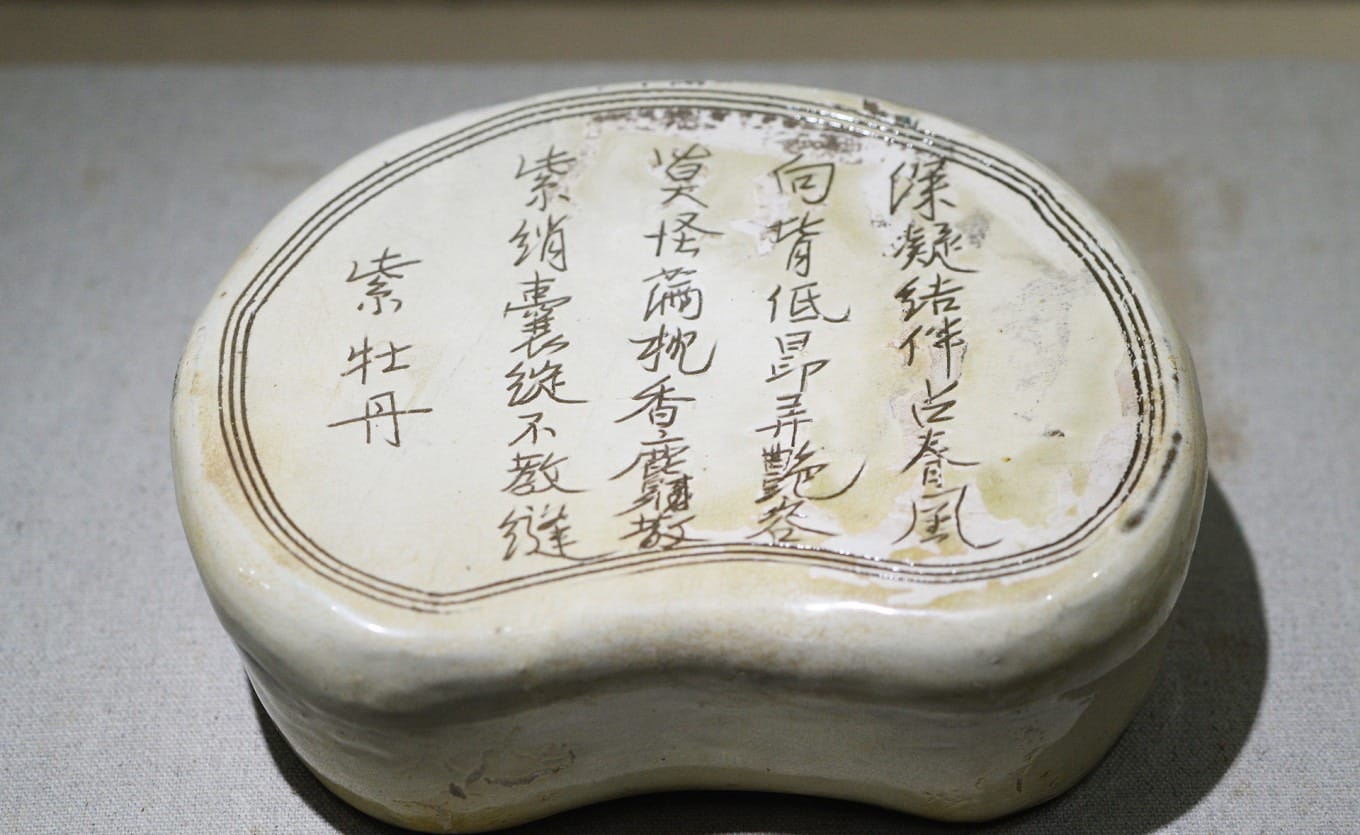 深凝结伴占春風
向背低昂弄艷容
莫怪蘭枕香麝散
紫綃囊綻不教縫
紫牡丹